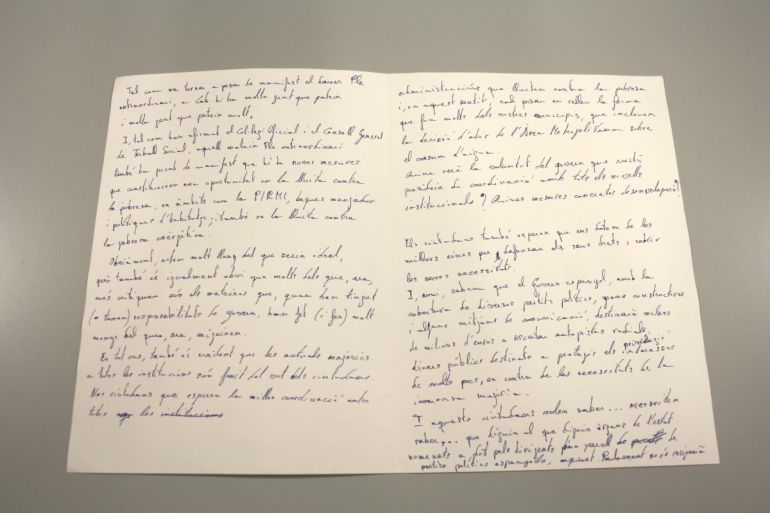 Tal com va tornar a posar de manifest el darrer Ple
extraordinari, a Cat. hi ha molta gent que pateix
i molta gent que pateix molt.
I, tal com han afirmat el Col·legi Oficial i el Consell General
de Treball Social, aquell mateix Ple extraordinari
també ha posat de manifest que hi ha noves mesures
que constitueixen una oportunitat en la lluita contra
la pobresa, en àmbits com la P/RMI, beques menjador
i polítiques d'habitatge; i també en la lluita contra
la pobresa energètica.
Òbviament, estem molt lluny del que seria ideal,
però també és igualment obvi que molts dels que, ara,
més critiquen són els mateixos que, quan han tingut
(o tenen) responsabilitats de govern, han fet (i fan) molt
menys del que, ara, exigeixen.
En tot cas, també és evident que les actuals majories
a totes les institucions són fruit del vot dels ciutadans.
Uns ciutadans que esperen la millor coordinació entre
totes les institucions
administracions que lluiten contra la pobresa
i, en aquest sentit, cal posar en relleu la feina
que fan molts dels nostres municipis, que inclouen
la decisió de l'Àrea Metropolitana sobre
el consum d'aigua.
Quina serà la voluntat del govern que vostè
presideix de coordinació amb tots els nivells
institucionals? Quines mesures concretes desenvoluparà?
Els ciutadans també esperen que ens dotem de les
millors eines per defensar els seus drets i cobrir
les seves necessitats.
I, avui, sabem que el Govern espanyol, amb la
cobertura de diversos partits polítics, grans constructores
i alguns mitjans de comunicació, destinarà milers
de milions d'euros a rescatar autopistes radials.
diners públics destinats a protegir els interessos
privats
de molts pocs, en contra de les necessitats de la
immensa majoria.
I aquests ciutadans volen saber... necessiten
saber... que diguin el que diguin òrgans de l'Estat
nomenats a dit pels dirigents d'un parell de
partits polítics espanyols, aquest Parlament no es resignarà